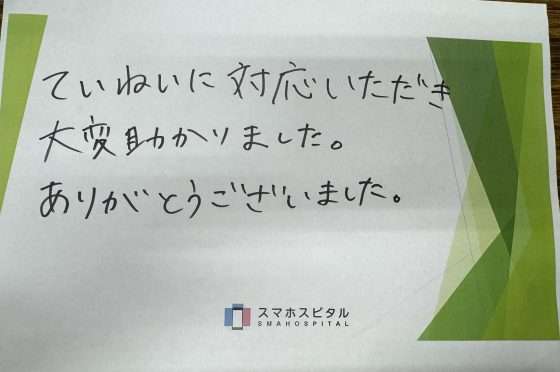 ていねいに対応いただき
大変助かりました。
ありがとうございました。
スマホスピタル
SMAHOSPITAL